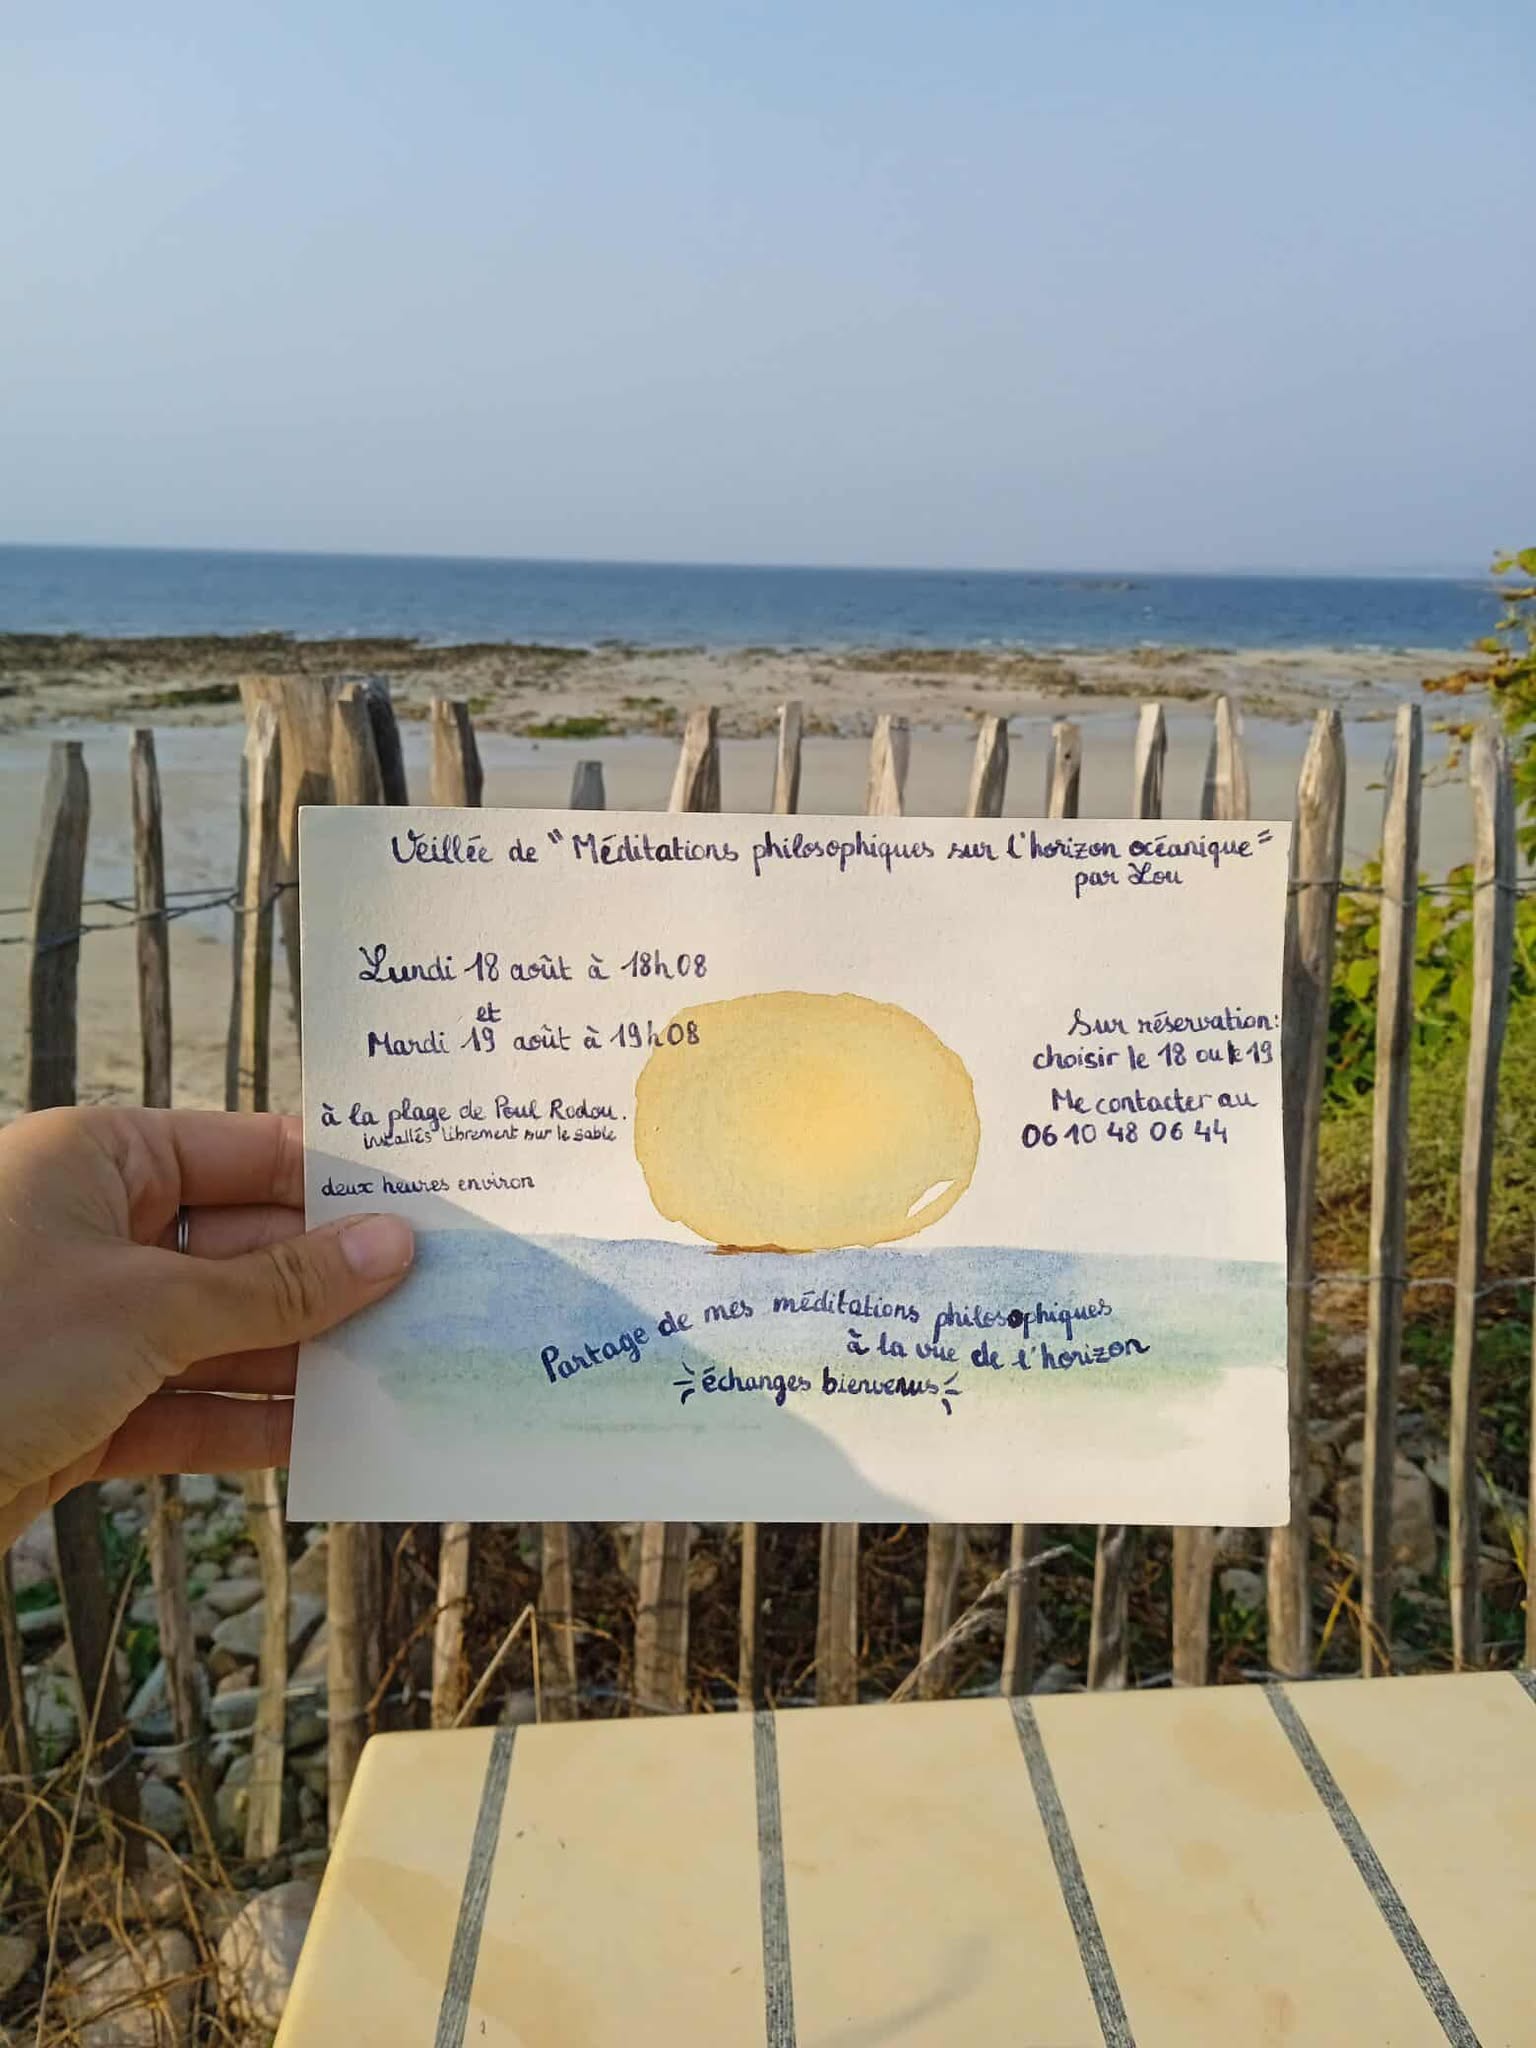 Veillée de "Méditations philosophiques sur l'horizon océanique"
par Lou
Lundi 18 août à 18h08
et
Mardi 19 août à 19h08
à la plage de Poul Rodou.
installés librement sur le sable
deux heures environ
Sur réservation:
choisir le 18 ou le 19
Me contacter au
06 10 48 06 44
Partage de mes méditations philosophiques
à la vue de l'horizon
échanges bienvenus